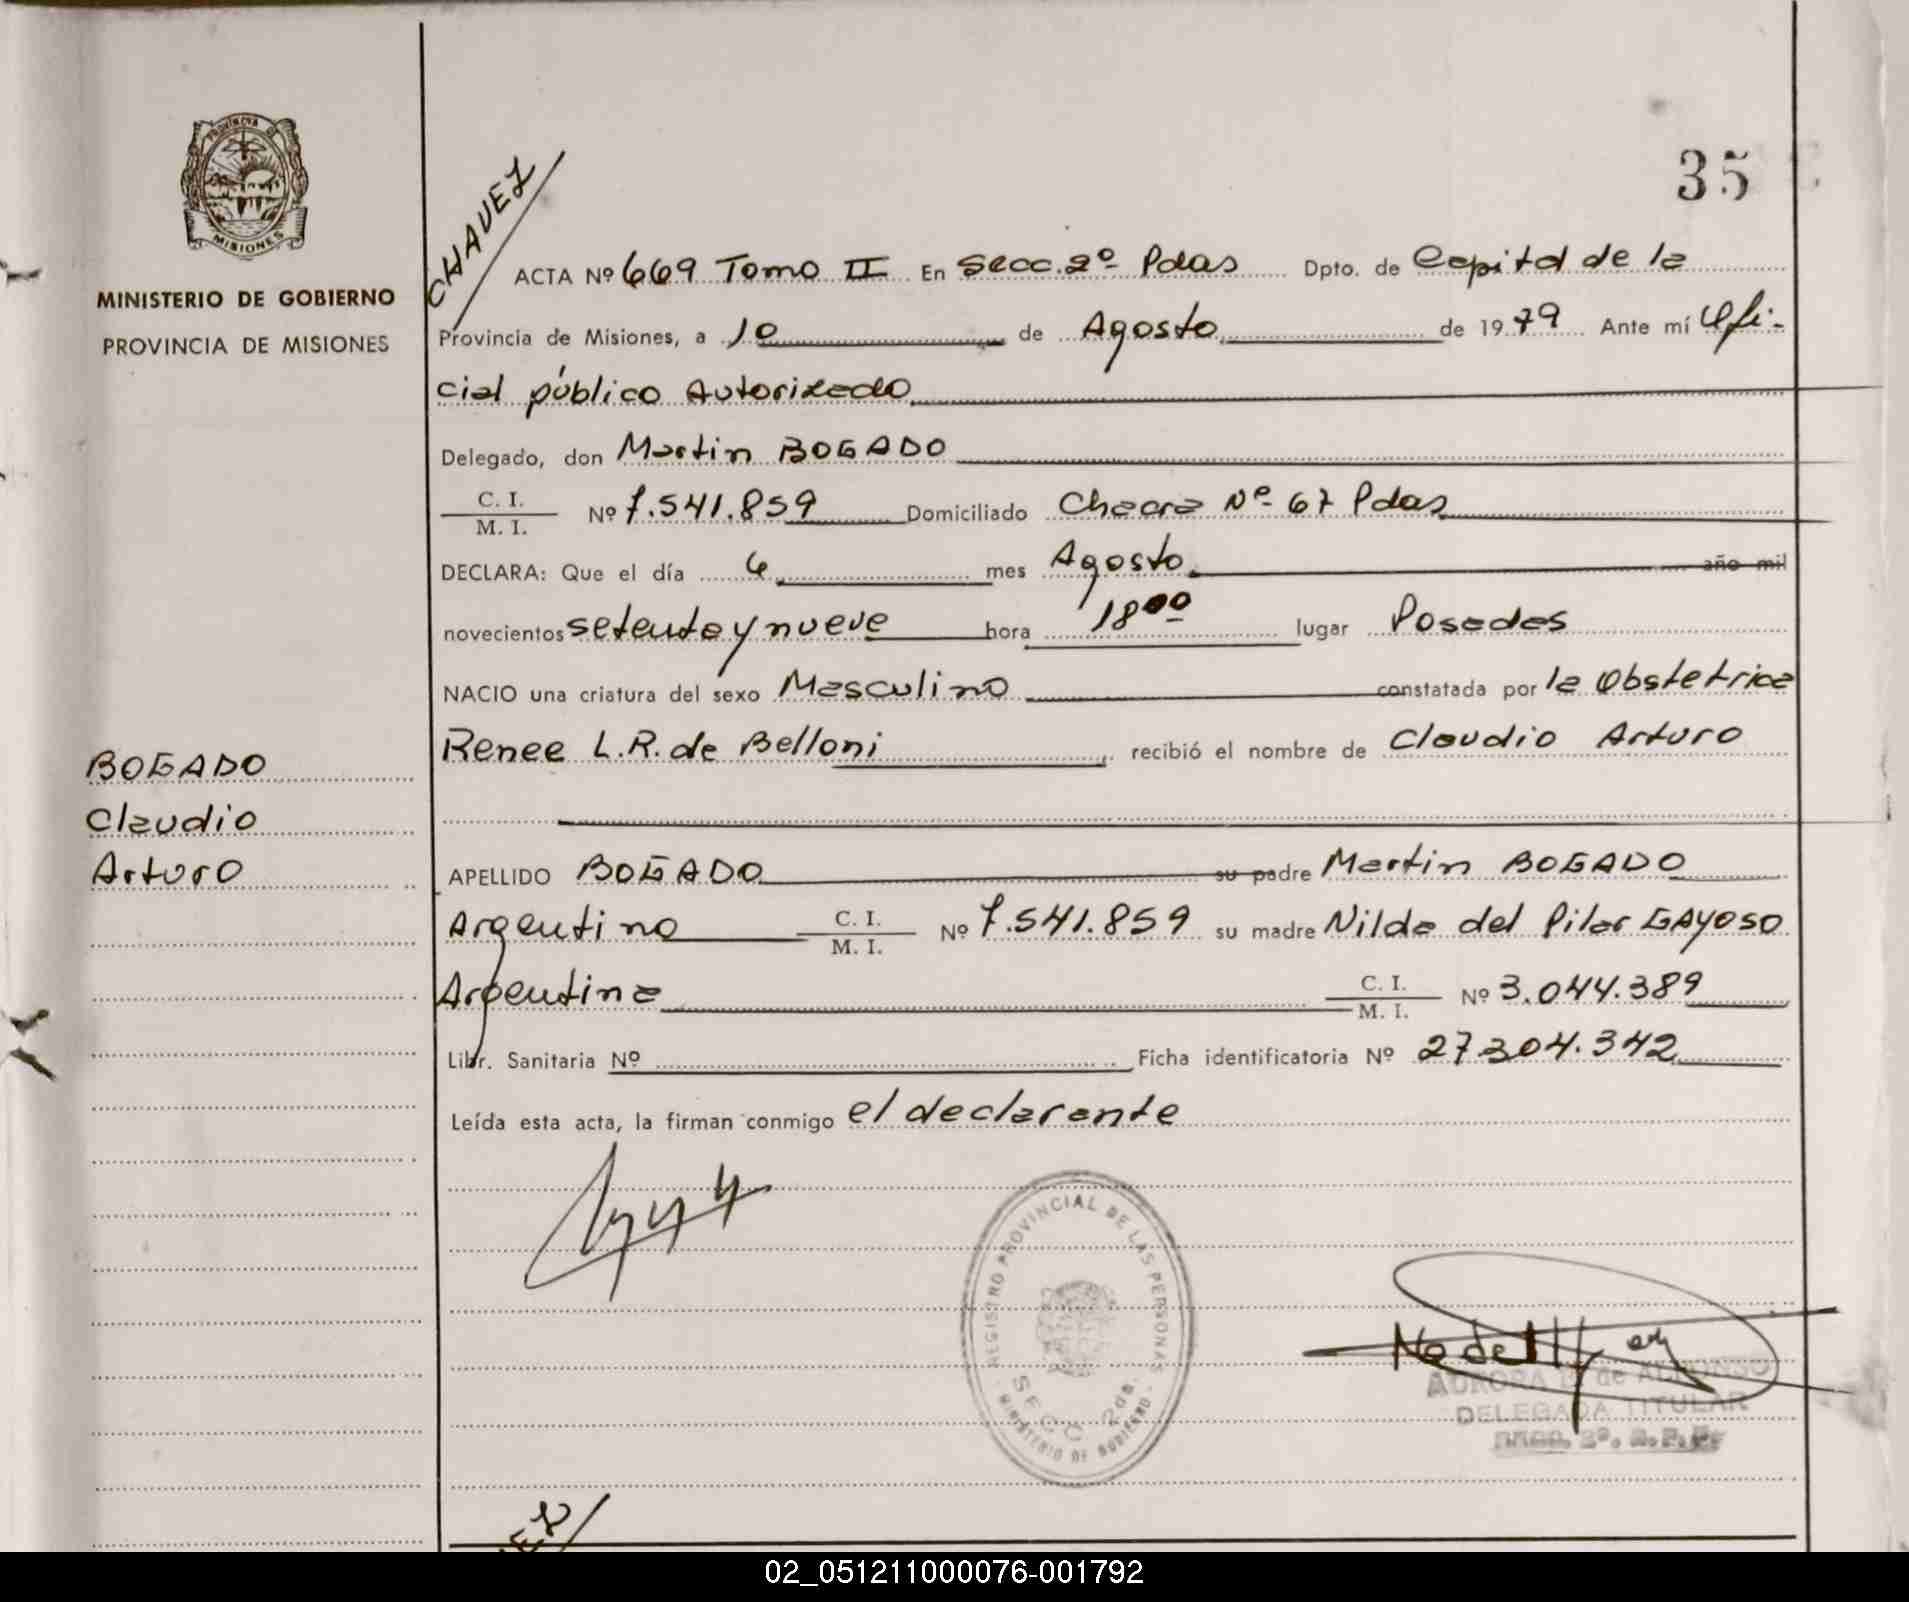 35
CHAVEZ
PROVINCIA DE
MISIONES
MINISTERIO DE GOBIERNO
PROVINCIA DE MISIONES
ACTA Nº 669 Tomo II En Secc. 2º Pdas Dpto. de Capital de la
Provincia de Misiones, a 10 de Agosto de 1979 Ante mí Ofi-
cial público Autorizado
Delegado, don Martin BOGADO
C. I.
M. I. Nº 7.541.859 Domiciliado Chacra Nº 67 Pdas
DECLARA: Que el día 6 mes Agosto año mil
novecientos setenta y nueve hora 18 00 lugar Posadas
NACIO una criatura del sexo Masculino constatada por la Obstetrica
Renee L.R. de Belloni recibió el nombre de Claudio Arturo
BOGADO
Claudio
Arturo
APELLIDO BOGADO su padre Martin BOGADO
Argentino C. I.
M. I. Nº 7.541.859 su madre Nilda del Pilar GAYOSO
Argentina C. I.
M. I. Nº 3.044.389
Libr. Sanitaria Nº Ficha identificatoria Nº 27.304.342
Leída esta acta, la firman conmigo el declarante
REGISTRO PROVINCIAL DE LAS PERSONAS
SECC 2da.
MINISTERIO DE GOBIERNO
AURORA de ALFONSO
DELEGADA TITULAR
SECC. 2º. R.P.P.
02_051211000076-001792